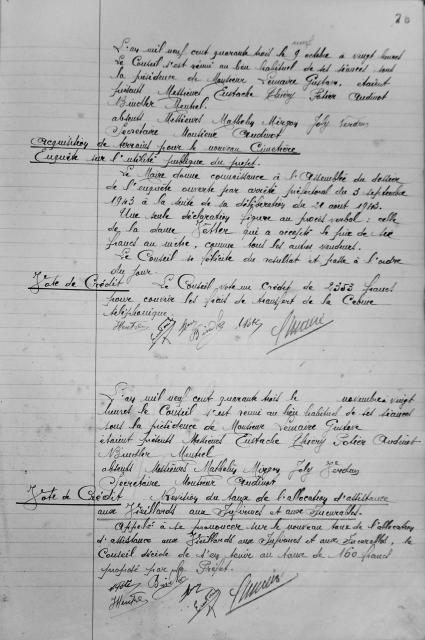 L'an mil neuf cent quarante trois le 9 octobre à vingt heures
Le Conseil s'est réuni au lieu habituel de ses séances sous
la présidence de Monsieur Lemaire Gustave, étaient
présents Messieurs Eustache Thiéry Potier Audinot
absents Messieurs Mathelin Joly
Secrétaire Monsieur Audinot
Acquisition de terrains pour le nouveau Cimetière
Enquête sur l'utilité publique du projet.
Le Maire donne connaissance à l'Assemblée du dossier
de l'enquête ouverte par arrêté préfectoral du 3 septembre
1943 à la suite de sa délibération du 21 août 1943.
Une seule déclaration figure au procès verbal : celle
de la dame qui a accepté le prix de
francs au mètre, comme tous les autres vendeurs.
Le Conseil se félicite du résultat et passe à l'ordre
du jour.
Vote de Crédit Le Conseil vote un crédit de 2353 francs
pour couvrir les frais de transport de la Cabine
téléphonique.
L'an mil neuf cent quarante trois le novembre vingt
heures le Conseil s'est réuni au lieu habituel de ses séances
sous la présidence de Monsieur Lemaire Gustave
étaient présents Messieurs Eustache Thiéry Potier Audinot
absents Messieurs Mathelin Joly
Secrétaire Monsieur Audinot
Vote de Crédit Révision du taux de l'allocation d'assistance
aux Vieillards aux Infirmes et aux Incurables.
Appelé à se prononcer sur le nouveau taux de l'allocation
d'assistance aux Vieillards aux Infirmes et aux Incurables, le
Conseil décide de s'en tenir au taux de 160 francs
proposé par le Préfet.